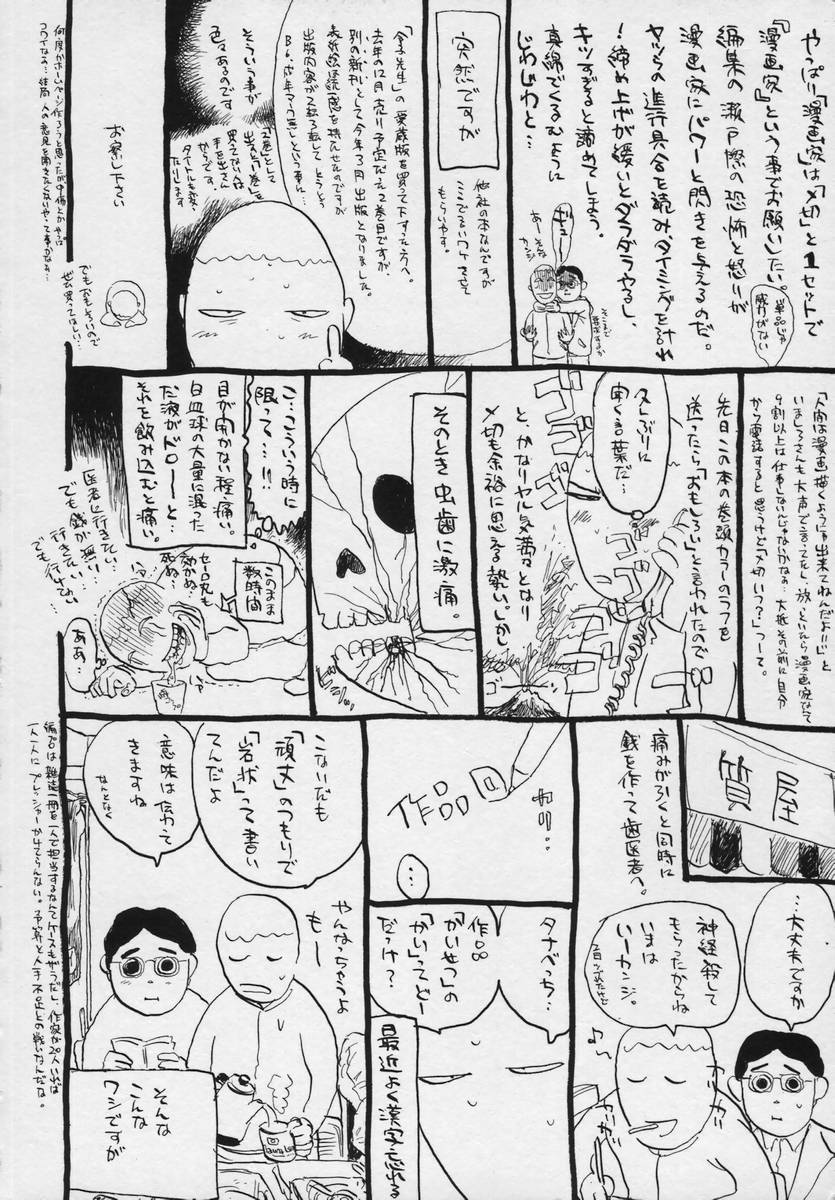 やっぱり「漫画家」は「〆切」と1セットで
『漫画家』という事でお願いしたい。
編集の瀬戸際の恐怖と怒りが
漫画家にパワーと閃きを与えるのだ。
ヤツらの進行具合を読み、タイミングを計れ
!締め上げが緩いとダラダラやるし、
キツすぎると諦めてしまう。
真綿でくるむように
じわじわと…
単品じゃ
ギュ
あーそんな
カンジ
突然ですが
他社の本なんですが
もらいやす。
「金子先生」の愛蔵版を買って下すった方へ。
去年の12月売り予定だった2巻目ですが、
別の新刊として今年3月出版となりました。
そういう事が
色々あるのです
お察し下さい
でもおもしろいので
ぜひ買ってほしい…
何度かホームページ作ろうと思ったが
「人間は漫画描くように出来てねんだよ!!」と
いましろさんも大声で言ってたし、放っといたら漫画家なんて
9割以上は仕事しないんじゃないかなぁ。大抵その前に自分
から電話すると思うけど「〆切いつ?」つーて。
先日この本の巻頭カラーのラフを
送ったら「おもしろい」と言われたので
久しぶりに
聞く言葉だ…
ゴゴゴゴ
ゴゴゴ
ゴ
と、かなりヤル気満々となり
〆切も余裕に思える勢い。しか
そのとき虫歯に激痛。
こ…こういう時に
限って…!!
目が開かない程痛い。
白血球の大量に混った
だ液がドローーと…
それを飲み込むと痛い。
このまま
数時間
セーロ丸も
効かぬ…
死ぬ…
医者に行きたい
でも銭が無い…
行きたい…
でも行けない…
ああ…
質屋
痛みが引くと同時に
銭を作って歯医者へ。
…大丈夫ですか
神経殺して
もらったからね
いまは
いーカンジ。
♪〜
カリカリ
カリカリ
作品回
カリ…
…
タナベっち…
作品
「かいせつ」の
「かい」ってどー
だっけ?
最近よく漢字忘れる
こないだも
「頑丈」のつもりで
「岩状」って書い
てんだよ
意味は伝わって
きますね
なんとなく
やんなっちゃうよ
もー
そんな
こんな
ワシですが
編プロは雑誌一冊を一人で担当するなんてケースもザラだし、作家が20人いれば
一人一人にプレッシャーかけてらんない。予算と人手不足との戦いなんだな。